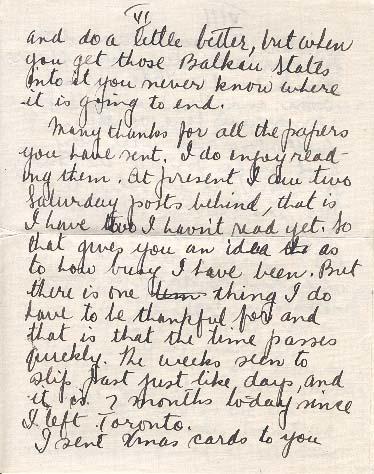 VI
and do a little better, but when
you get those Balkan States
into it you never know where
it is going to end.
Many thanks for all the papers
you have sent. I do enjoy read-
ing them. At present I am two
Saturday posts behind, that is
I have two I havn't read yet. So
that gives you an idea as
to how busy I have been. But
there is one thing I do
have to be thankful for and
that is that the time passes
quickly. The weeks seem to
slip past just like days, and
it is 7 months to-day since
I left Toronto.
I sent Xmas cards to you